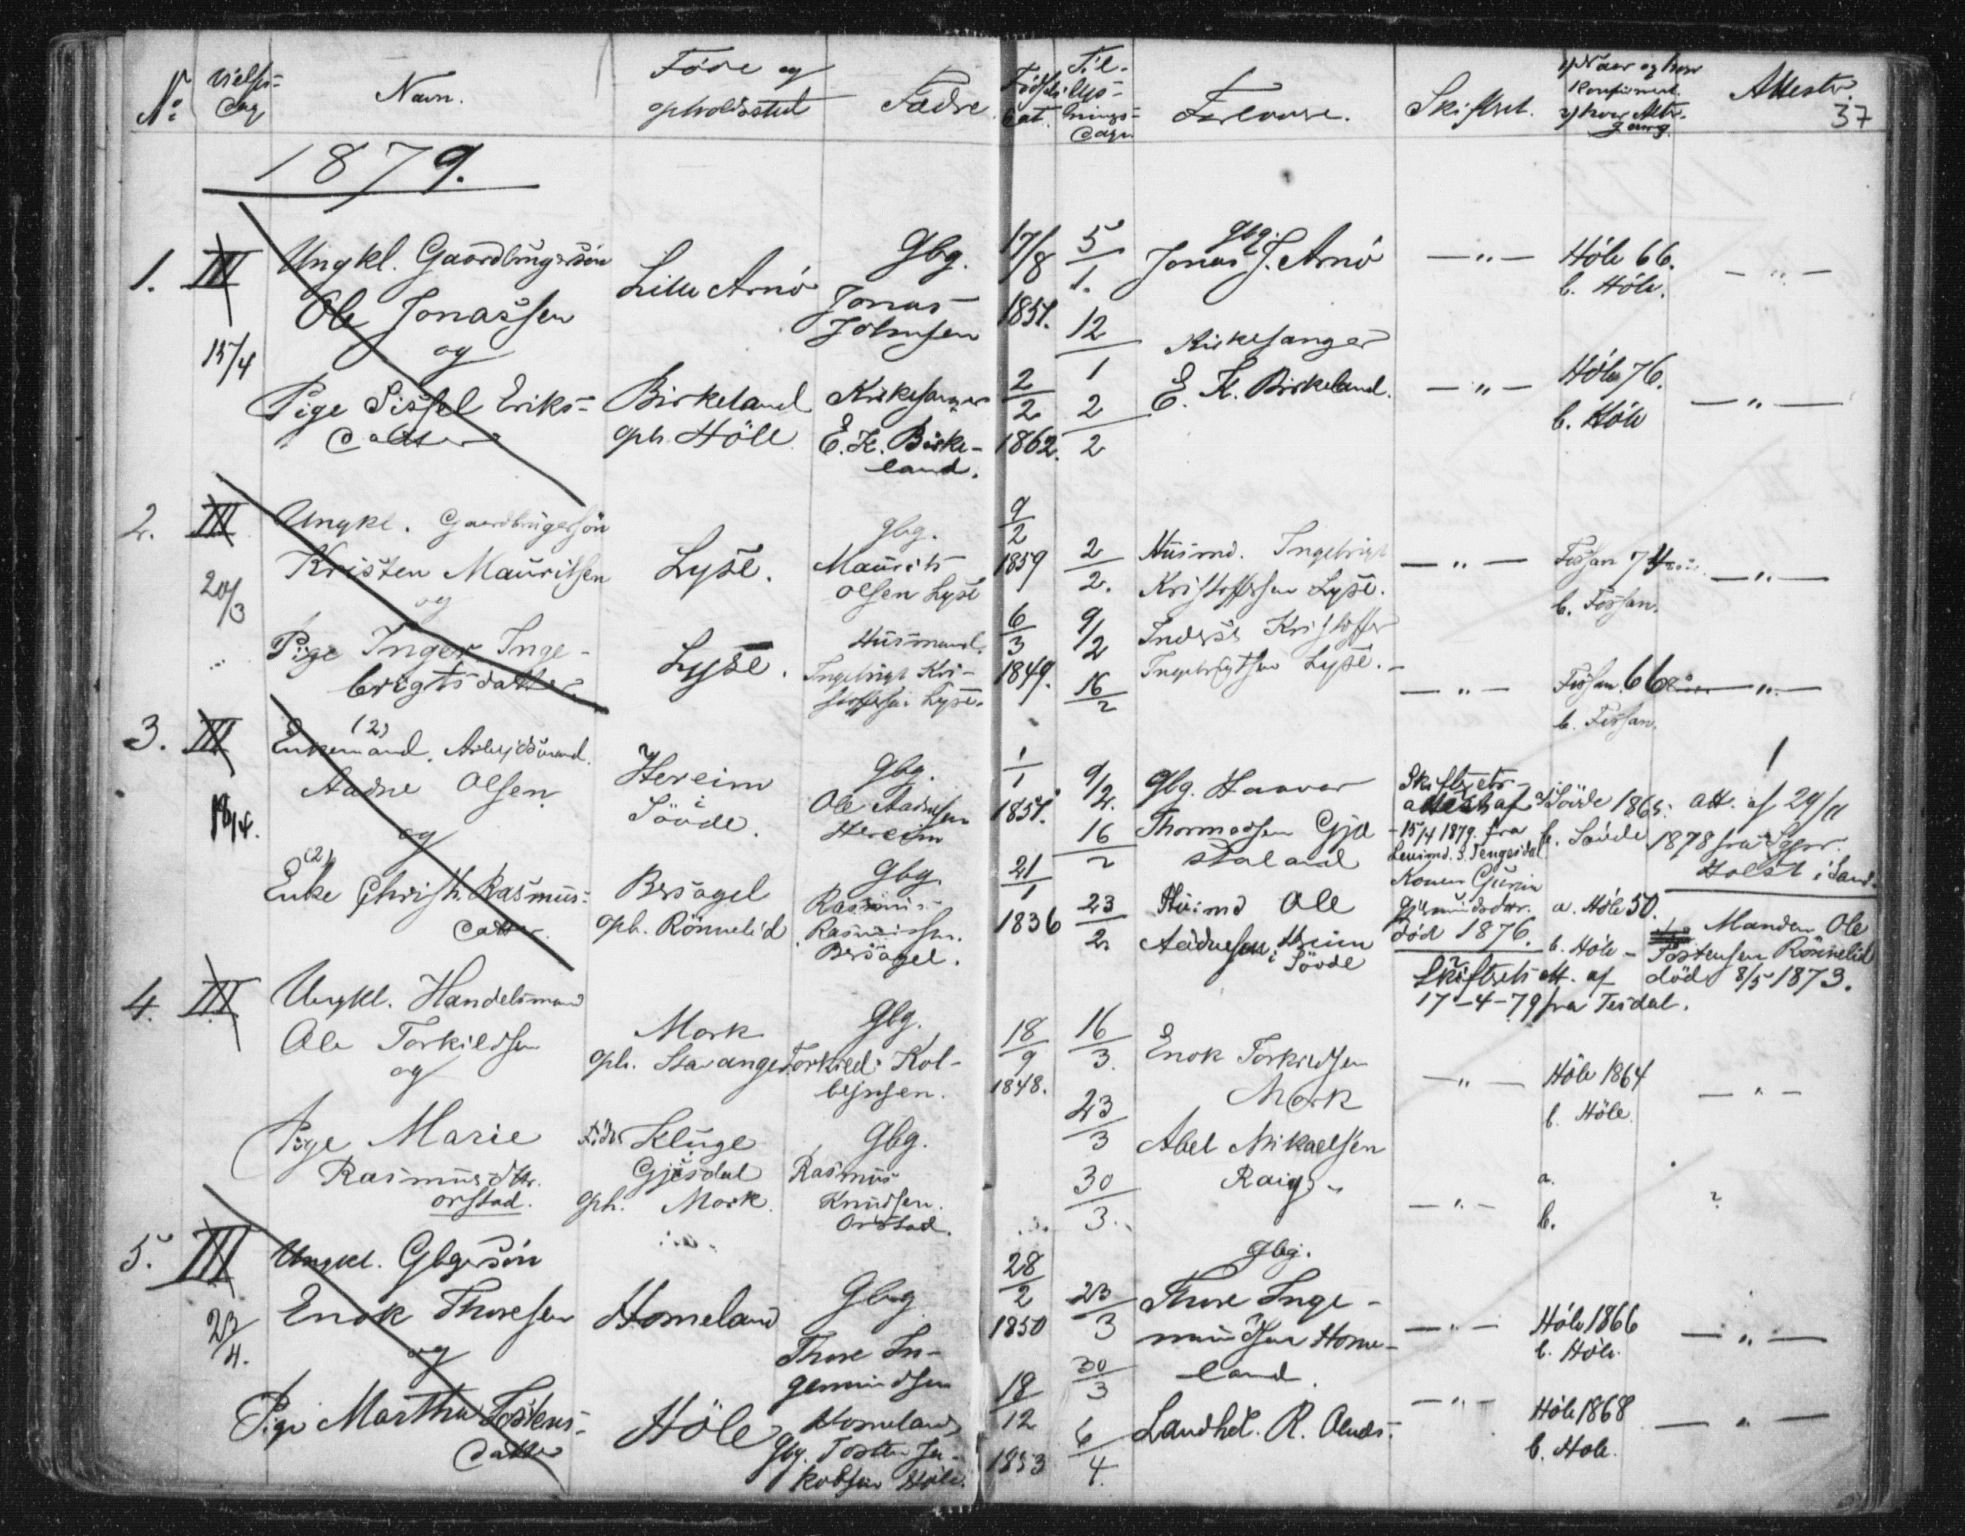 No
Vielses-
dag
Navn.
Föde og
opholdssted
Fædre
Födsels
dat.
Til-
lys-
nings-
dage
Forlovere.
Skiftret.
Naar og hvor
Konfirmert.
2) hvor Altr.
gang
Attestr.
37
1879.
1. III
15/4
Ungkl. Gaardbrugersön
Ole Jonassen
og
Pige Sissel Eriks-
datter
Lille Arnö
Birkeland
oph. Höle
Gbg.
Jonas
Johnsen
Kirkesanger
E. K. Birke-
land.
17/8
1851.
2/2
1862.
5/1.
12/1
2/2
gbg.
Jonas J. Arnö
Kirkesanger
E. K. Birkeland.
— " —
— " —
Höle 66.
b. Höle.
Höle 76.
b. Höle
— " —
— " —
2. III
20/3
Ungkl. Gaardbrugersön
Kristen Mauritsen
og
Pige Inger Inge-
brigtsdatter
Lyse.
Lyse.
gbg.
Maurits
Olsen Lyse
Husmand.
Ingebrigt Kri-
stoffersen Lyse.
9/2
1859
6/3
1849.
2/2.
9/2
16/2
Husmd. Ingebrigt
Kristoffersen Lyse.
Kristoffer
Ingebrigtsen Lyse.
— " —
— " —
Fossan 74
b. Fossan.
Fossan 66
b. Fossan.
— " —
— " —
3. III
18/4.
(2)
Enkemand. Arbejdsmand.
Aadne Olsen
og
(2)
Enke Christi. Rasmus-
datter.
Hereim
Sövde.
Bersagel
oph. Rönnelid
Gbg.
Ole Aadnesen
Hereim
Gbg
Rasmus
Rasmussen.
Bersagel.
1/1
1851.
21/1
1836
9/2.
16/2
23/2
Gbg. Haavar
Thormodsen Gje
staland
Husmd Ole
Aadnesen Hereim
i Sövde
Skiftretr
attest af
15/4 1879. fra
Lensmd. S. Tengesdal
Konen Gurine
Gjermundsdtr.
död 1876.
Skiftrets att. af
17-4-79 fra Tesdal.
a) Sövde 1865.
b. Sövde
a. Höle 50.
b. Höle -
att. af 29/11
1878 fra Sgpr.
Holst i Sand.
Manden Ole
Tostensen Rönnelid
död 8/5 1873.
4. III
Ungkl. Handelsmand
Ole Torkildsen
og
Pige Marie
Rasmusdttr.
Orstad.
Mork
oph. Stavanger
Födt Kluge
Gjesdal
oph. Mork.
Gbg.
Torkild Kol-
bejnsen.
Gbg.
Rasmus
Knudsen.
Orstad.
18/9
1848.
16/3.
23/3
30/3.
Enok Torkildsen
Mork
Abel Mikaelsen
Raigs
— " —
— " —
Höle 1864
b. Höle.
a.
b.
— " —
?
5. III
23/4.
Ungkl. Gbgersön
Enok Thoresen
og
Pige Martha Tostens-
datter
Homeland
Höle
Gbg
Thore In-
gemundsen
Homeland
Gbg. Tosten Ja-
kobsen Höle.
28/2
1850
18/12
1853
23/3
30/3
6/4.
gbg.
Thore Inge-
mundsen Home-
land.
Landhdl. R. Aends.
— " —
— " —
Höle 1866
b. Höle.
Höle 1868
b. Hole.
— " —
— " —